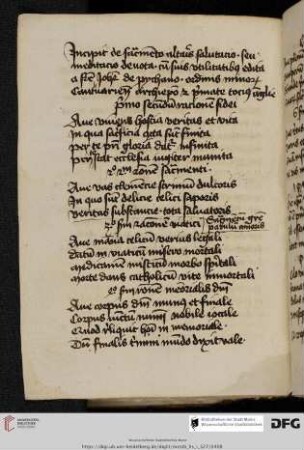 Incipit de sacramento altaris salutacio seu
meditacio devota cum suis utilitatibus edita
a fratre Johanne de pychano ordinis minorum
Cantuariensi archiepiscopo et primate tocius anglie
primo secundum racionem fidei
Ave vivens hostia veritas et vita
In qua sacrificia cuncta sunt finita
per te patri gloria datur infinita
per te stat ecclesia iugiter munita
2o secundum racionem sacramenti
Ave vas clemencie scrinium dulcoris
In quo sunt delicie celici saporis
Veritas substancie tota salvatoris
3o secundum racionem viatici
Sacramentum gracie pabulum amoris
Ave manna celicum verius legali
datum in viaticum misero mortali
Medicamen misticum morbo spirituali
Morte dans catholicum vite immortali
4o secundum racionem memorialis domini
Ave corpus domini munus et finale
Corpus iunctum numini nobile iocale
Quod reliquit homini in memoriale
Dum finalis terminum mundo dixit vale